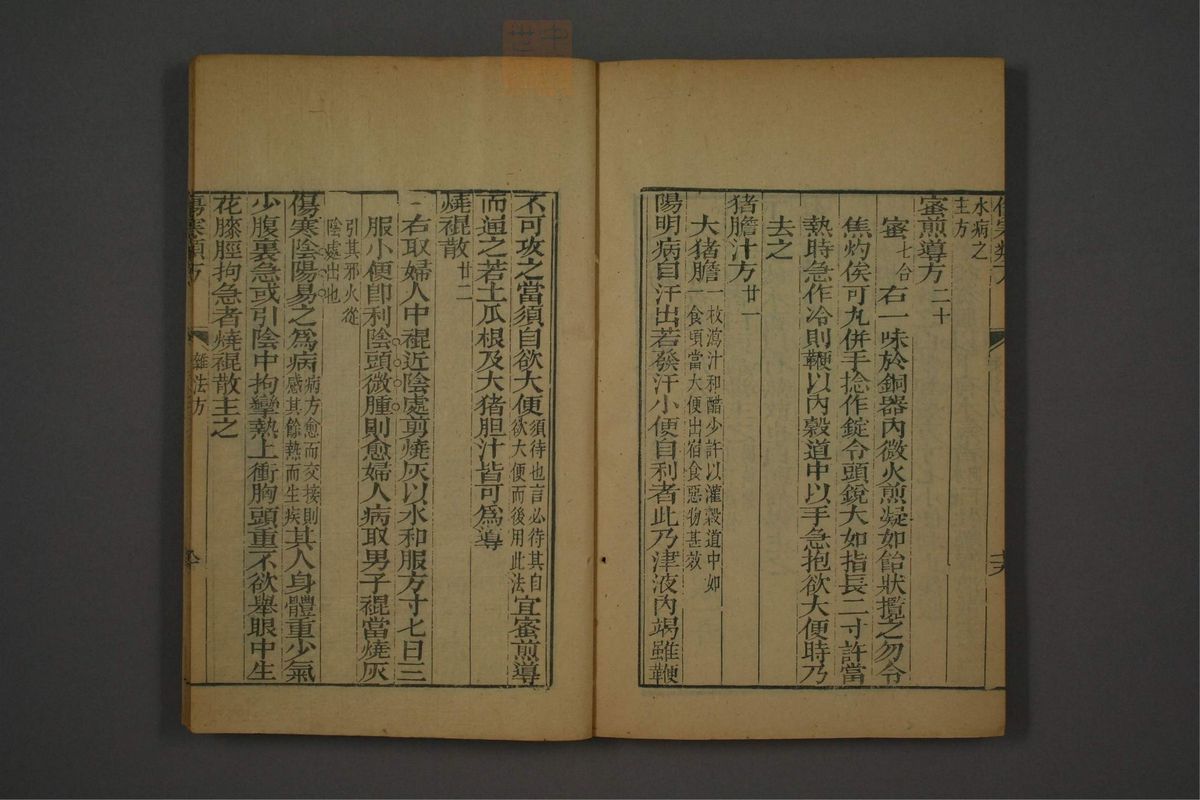 水病之
主方
蜜煎導方二十
蜜七合右一味於銅器內微火煎凝如飴狀攪之勿令
焦灼俟可丸併手捻作錠令頭銳大如指長二寸許當
熱時急作冷則鞕以內穀道中以手急抱欲大便時乃
去之
猪膽汁方廿一
大猪膽一枚瀉汁和醋少許以灌穀道中如
一食頃當大便出宿食惡物甚效
陽明病自汗出若發汗小便自利者此乃津液內竭雖鞕
不可攻之當須自欲大便須待也言必待其自
欲大便而後用此法宜蜜煎導
而通之若土瓜根及大猪胆汁皆可為導
燒裩散廿二
右取婦人中裩近陰處剪燒灰以水和服方寸匕日三
服小便即利陰頭微腫則愈婦人病取男子裩當燒灰
引其邪火從
陰處出也
傷寒陰陽易之為病病方愈而交接則
感其餘熱而生疾其人身體重少氣
少腹裏急或引陰中拘攣熱上衝胸頭重不欲舉眼中生
花膝脛拘急者燒裩散主之
傷寒類方
雜法方